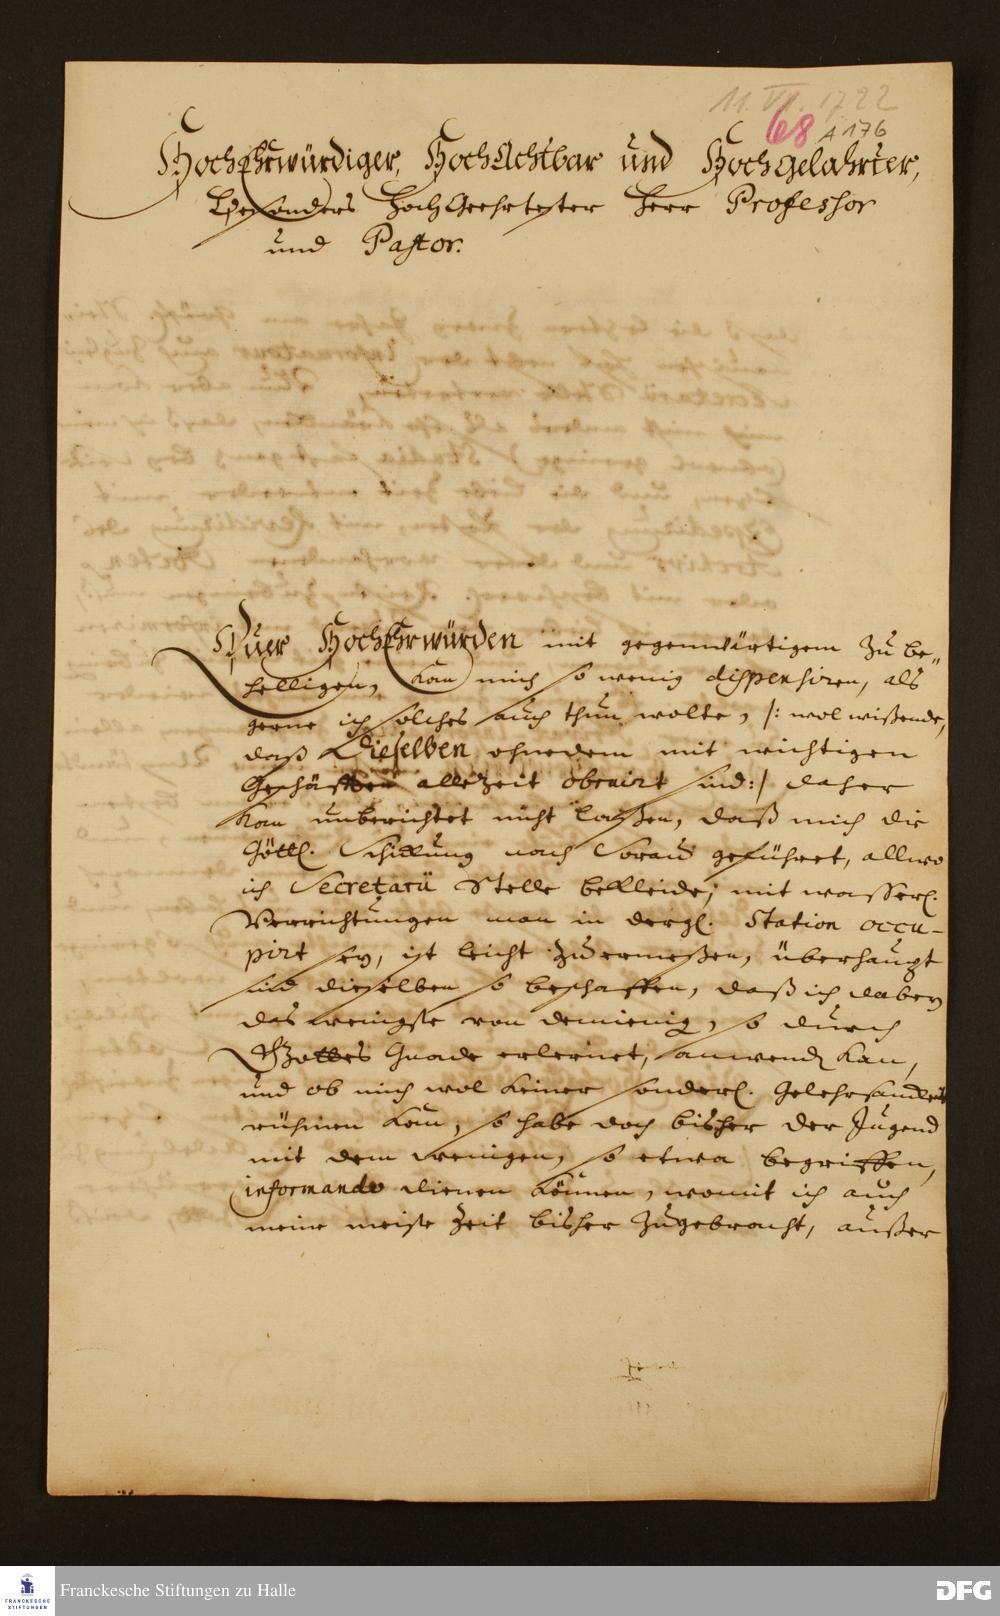 11. VI. 1722
68 A 176
HochEhrwürdiger, HochAchtbar und Hochgelahrter,
Besonders HochGeehrtester Herr Professor
und Pastor.
Euer HochEhrwürden mit gegenwärtigem zu be-
helligen, kan mich so wenig dispensiren, als
gerne ich solches auch thun wolte, /: wol wißende,
daß Dieselben ohnedem mit wichtigen
Geschäfften allezeit obruirt sind :/ daher
kan unberichtet nicht laßen, daß mich die
Göttl. Schickung nach Sorau geführet, allwo
ich Secretarii Stelle bekleide; mit wasserl.
Verrichtungen man in dergl. Station occu-
pirt sey, ist leicht zu ermeßen, überhaupt
sind dieselben so beschaffen, daß ich dabey
das wenigste von demienig, so durch
Gottes Gnade erlernet, anwend kan,
und ob mich wol keiner sonderl. Gelehrsamkeit
rühmen kan, so habe doch bisher der Jugend
mit dem wenigen, so etwa begriffen,
informando dienen können, womit ich auch
meine meiste Zeit bisher zugebracht, außer
FRANCKESCHE
STIFTUNGEN
Franckesche Stiftungen zu Halle
DFG